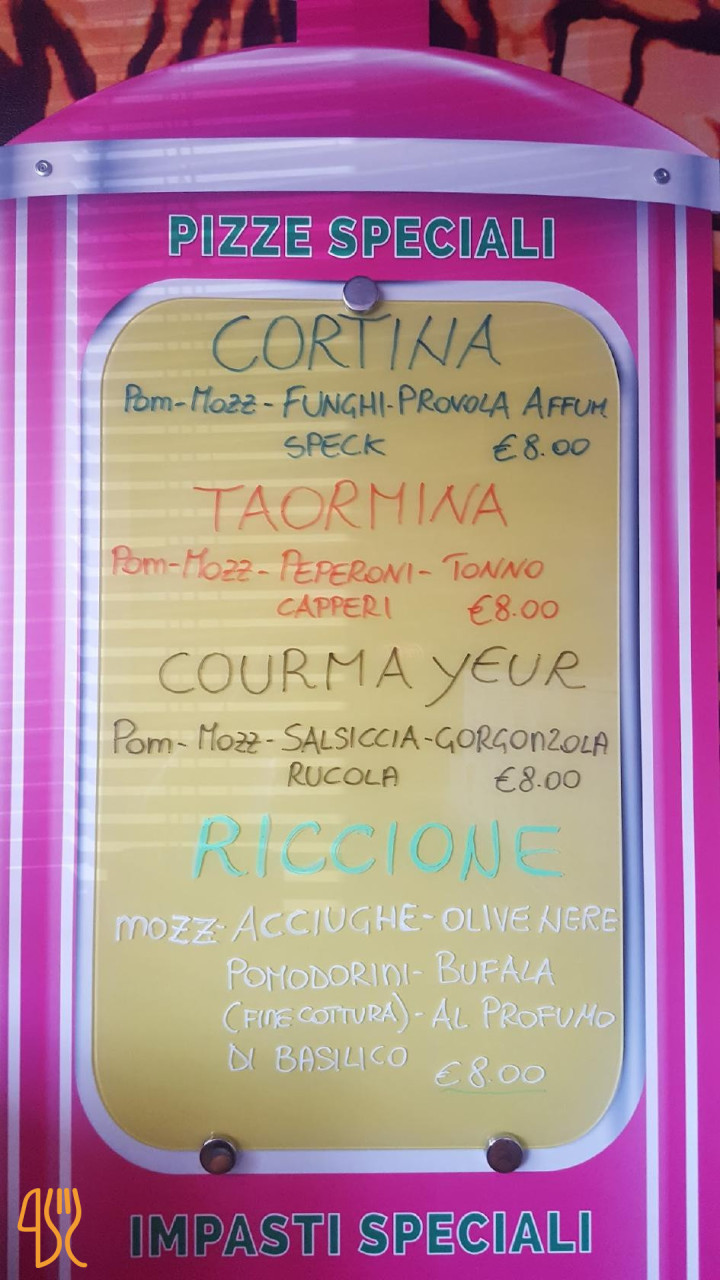 PIZZE SPECIALI
CORTINA
Pom-Mozz-FUNGHI-PROVOLA AFFUM
SPECK €8.00
TAORMINA
Pom-Mozz-PEPERONI-TONNO
CAPPERI €8.00
COURMAYEUR
Pom-Mozz-SALSICCIA-GORGONZOLA
RUCOLA €8.00
RICCIONE
mozz-ACCIUGHE-OLIVE NERE
POMODORINI-BUFALA
(FINE COTTURA)-AL PROFUMO
DI BASILICO €8.00
IMPASTI SPECIALI